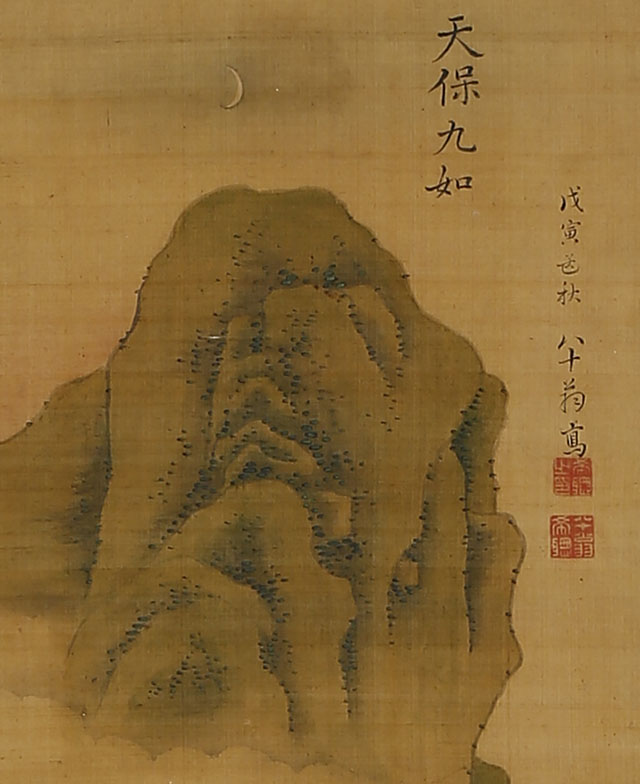 天保九如
戊寅秋 八十翁寫